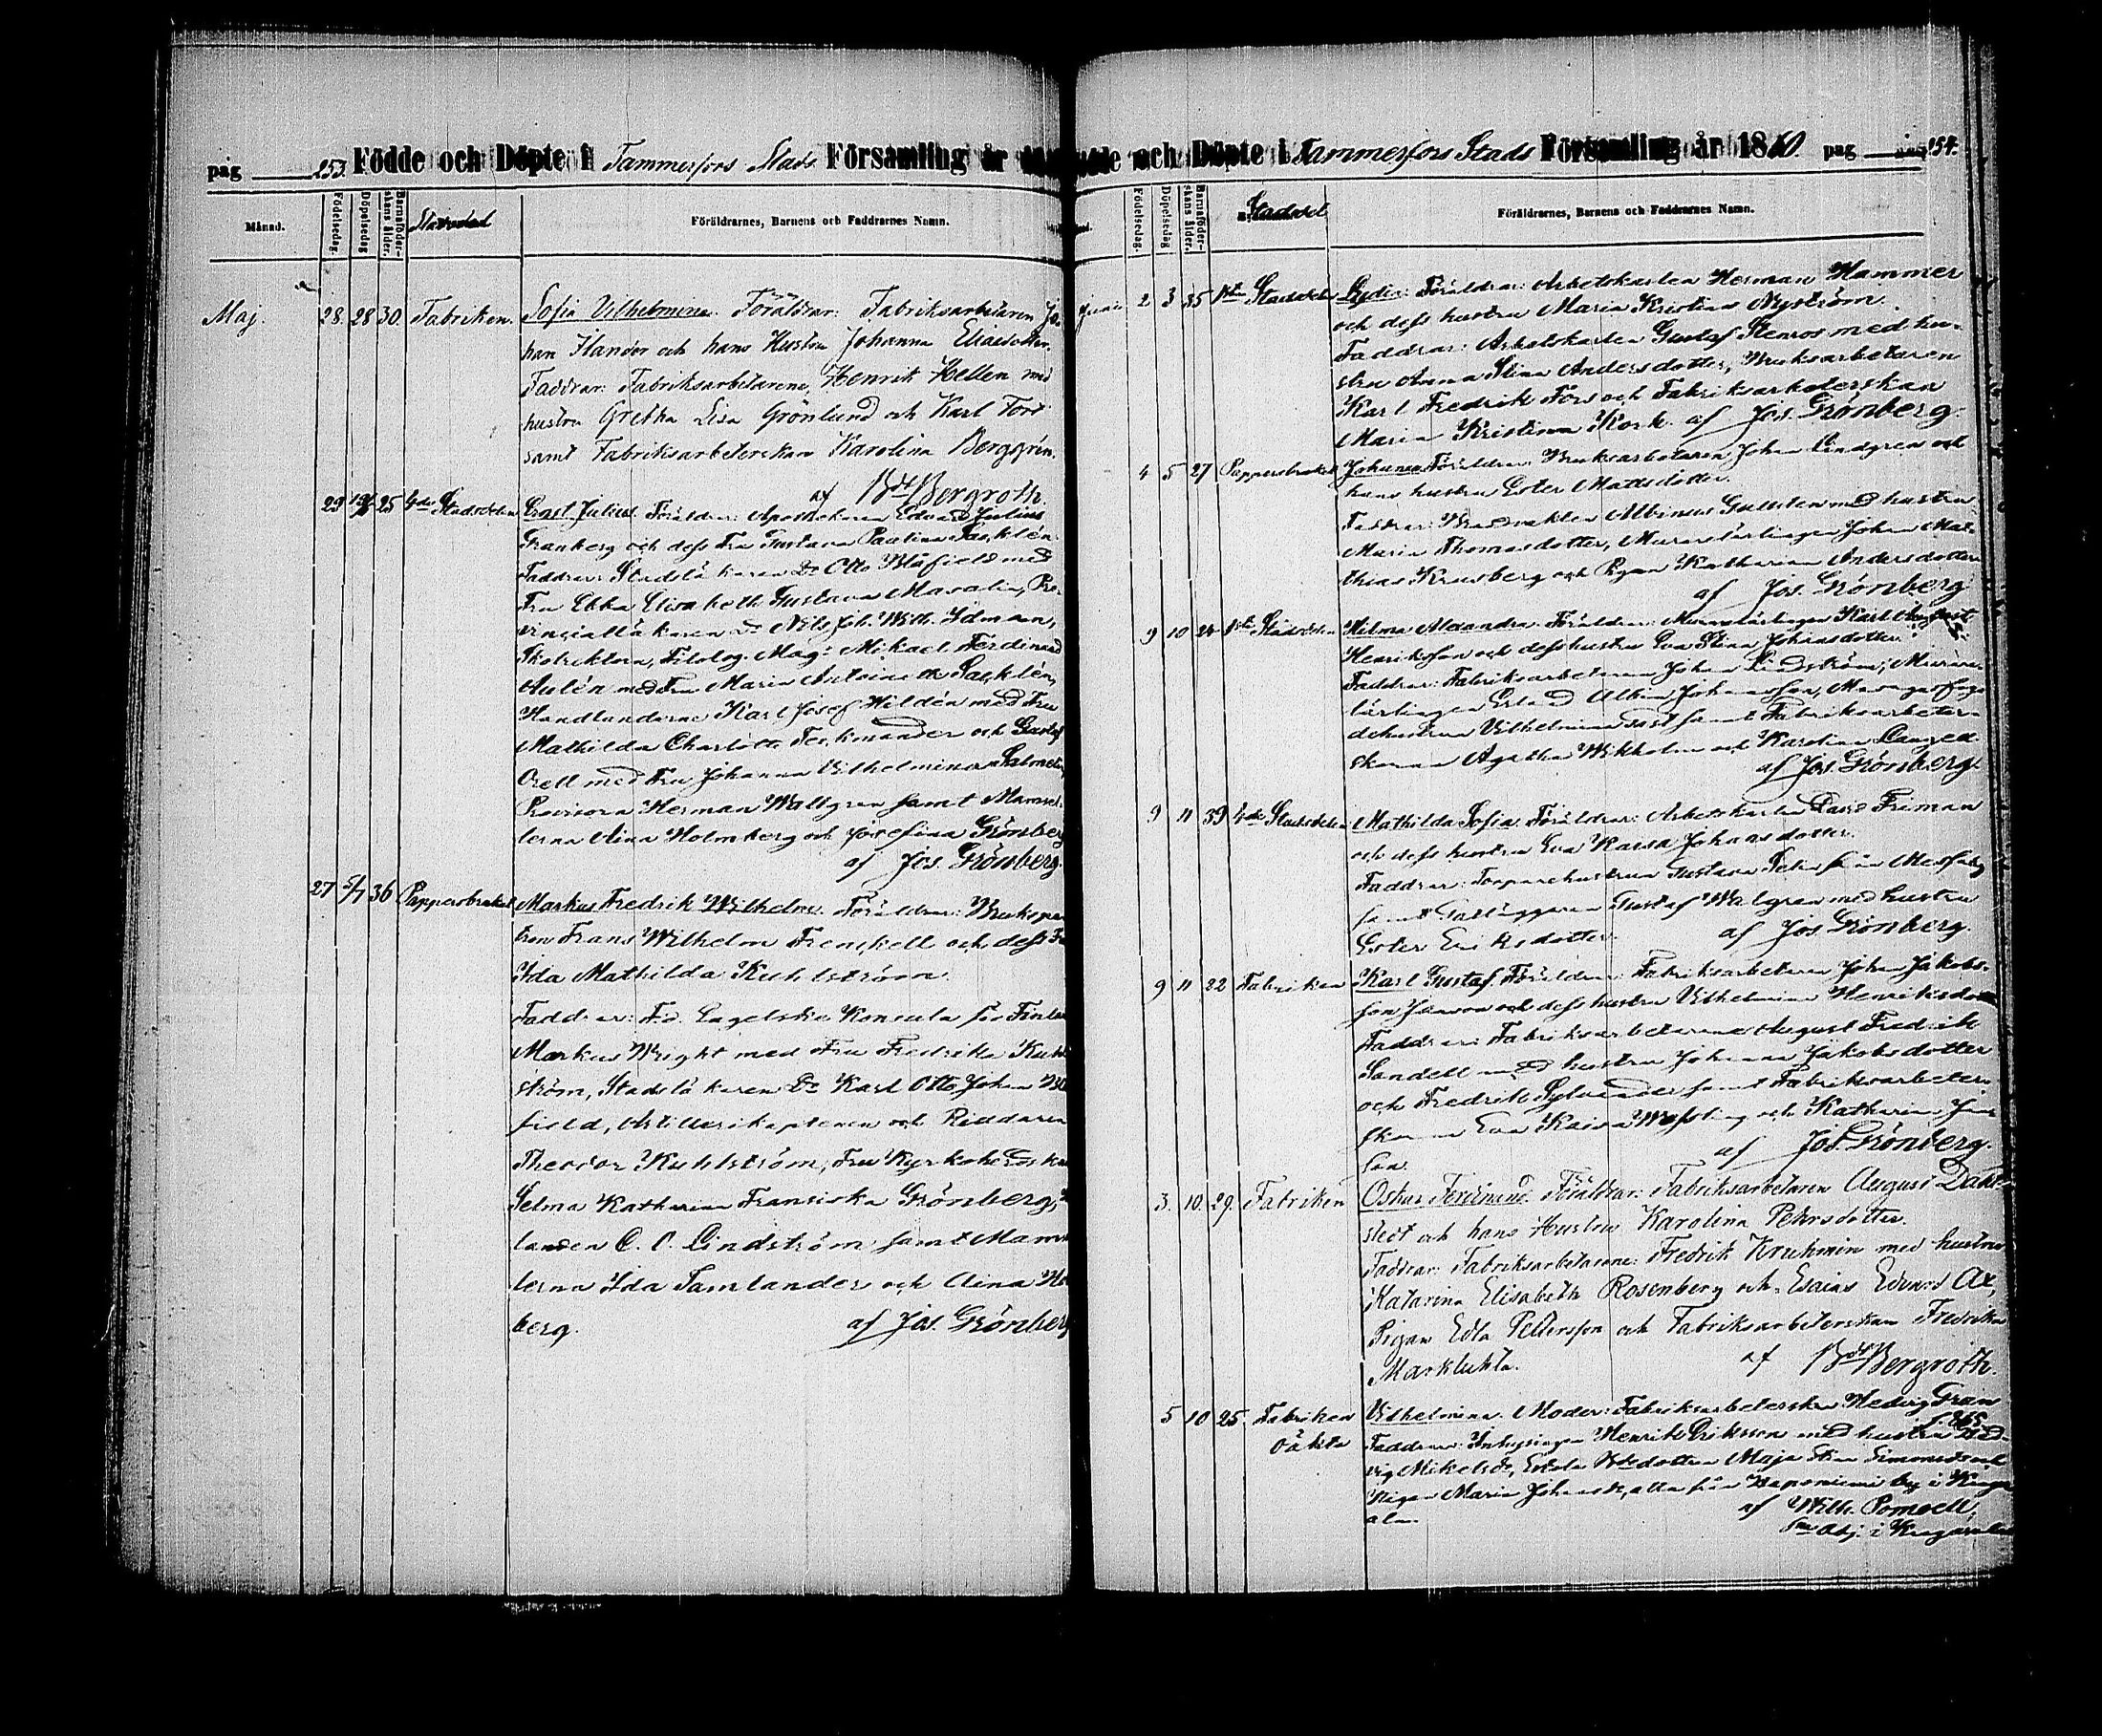 pag 253. Födde och Döpte i Tammerfors Stads Församling år
Månad. Födelsedag. Döpelsedag Barnaföderskans ålder. Stadsdel Föräldrarnes, Barnens och Faddrarnes Namn.
Maj. 28. 28 30. Fabriken. Sofia Vilhelmina. Föräldrar: Fabriksarbetaren Jo-
han Ilander och hans Hustru Johanna Eliaedotter.
Faddrar: Fabriksarbetarene, Henrik Hellen med
hustru Gretha Lisa Grönlund och Karl Tord
samt Fabriksarbeterskan Karolina Berggrén.
af Bdt Bergroth.
29 25 4de Stadsdelen Ernst Julius. Föräldrar: Apothekaren Edvard Julius
Granberg och dess Fru Gustava Paulina Sacklén.
Faddrar: Stadsläkaren Dr Otto Blåfield med
Fru Ebba Elisabeth Gustava Masalin, Pro-
vinciälläkaren Dr Nils Joh. Wilh. Idman,
Skolrektorn, Filolog. Mag: Mikael Ferdinand
Aulén med Fru Maria Antoinette Sacklén,
Handlandarne Karl Josef Hildén med Fru
Mathilda Charlotta Feckmander och Gustaf
Orell med Fru Johanna Vilhelmina
Provisorn Herman Wallgren samt Mamsel-
lerna Aina Holmberg och Josefina Grönberg
af Jos. Grönberg.
27 5/7 36 Pappersbruket Markus Fredrik Wilhelm. Föräldrar: Brukspa-
tron Frans Wilhelm Frenckell och dess Fru
Ida Mathilda Kuhlström.
Faddrar: F.d. Engelska Konsuln för Finland
Markus Wright med Fru Fredrika Kuhl-
ström, Stadsläkaren Dr Karl Otto Johan Blå-
field, Artillerikaptenen och Riddaren
Theodor Kuhlström, Fru Kyrkoherdeskan
Selma Katharina Fransiska Grönberg,
landen C. O. Lindström samt Mamsel-
lerna Ida Samlander och Aina Holm-
berg. af Jos. Grönberg
och Döpte i Tammerfors Stads Församling år 1860. pag 254.
Födelsedag. Döpelsedag Barnaföderskans ålder. Stadsdel Föräldrarnes, Barnens och Faddrarnes Namn.
Juni 2 3 35 1sta Stadsdelen Lydia. Föräldrar: Arbetskarlen Herman Hammer
och dess hustru Maria Kristina Nyström.
Faddrar: Arbetskarlen Gustaf Stenros med hu-
stru Anna Stina Andersdotter, Bruksarbetaren
Karl Fredrik Fors och Fabriksarbeterskan
Maria Kristina Kork. af Jos. Grönberg.
4 5 27 Pappersbruket Johannes. Föräldrar: Bruksarbetaren Johan Lindgren och
hans hustru Ester Mattsdotter.
Faddrar: Albinus Gullsten med hustru
Maria Thomasdotter, Murarelärlingen Johan Mat-
thias Krusberg och Pigan Katharina Andersdotter
af Jos. Grönberg
9 10 24 1sta Stadsdelen Hilma Alexandra. Föräldrar: Murarelärlingen Karl August
Henriksson och dess hustru Eva Stina Johansdotter.
Faddrar: Fabriksarbetaren Johan Lindström, Murare-
lärlingen Erland Albin Johansson,
dehustrun Vilhelmina samt Fabriksarbeter-
skorna Agatha Wikholm och Karolina
af Jos. Grönberg.
9 11 39 4de Stadsdelen Mathilda Sofia. Föräldrar: Arbetskarlen David Friman
och dess hustru Eva Kaisa Johansdotter.
Faddrar: Torparehustrun Gustava från Messuby
samt Gustaf Walgren med hustru
Ester Eriksdotter. af Jos. Grönberg.
9 11 22 Fabriken Karl Gustaf. Föräldrar: Fabriksarbetaren Johan Jakobs-
son och dess hustru Vilhelmina Henriksdotter
Faddrar: Fabriksarbetarene August Fredrik
Sandell med hustru Johanna Jakobsdotter
och Fredrik Sylvander samt Fabriksarbeter-
skorna Eva Kaisa och Katharina
af Jos. Grönberg.
3. 10. 29. Fabriken Oskar Ferdinand. Föräldrar: Fabriksarbetaren August Dahl-
stedt och hans Hustru Karolina Petersdotter.
Faddrar: Fabriksarbetarene: Fredrik Kruhmin med hustru
Katarina Elisabeth Rosenberg och Esaias Edvard Ax,
Pigan Edla Pettersson och Fabriksarbeterskan Fredrika
Markluhta. af Bdt Bergroth.
5 10 25. Fabriken Vilhelmina. Moder: Fabriksarbeterskan Hedvig Gran
oäkta Faddrar: Inhysingen Henrik Eriksson med hustru Hed-
vig Mikelsdr, Maja Stina Simonsdr och
Pigan Maria Johansdr, alla från Haponiemi by i Kang-
ala. af Wilh. Pomoell,
Adj. i Kangasala